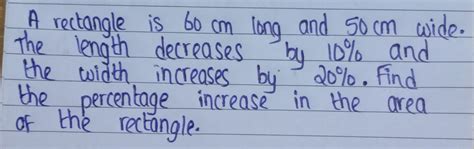 A rectangle is 60 cm long and 50 cm wide.
The length decreases by 10% and
the width increases by 20%. Find
the percentage increase in the area
of the rectangle.